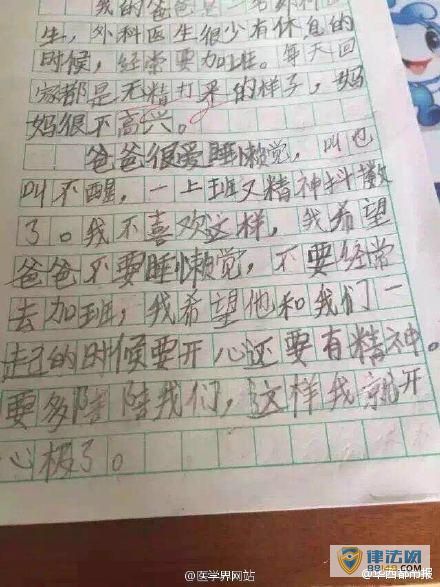 我的爸爸是一名外科医
生，外科医生很少有休息的
时候，经常要加班。每天回
家都是无精打采的样子，妈
妈很不高兴。
爸爸很爱睡懒觉，叫也
叫不醒，一上班又精神抖擞
了。我不喜欢这样，我希望
爸爸不要睡懒觉，不要经常
去加班，我希望他和我们一
起的时候要开心还要有精神。
要多陪陪我们，这样我就开
心极了。
@医学界网站
@华西都市报
律法网